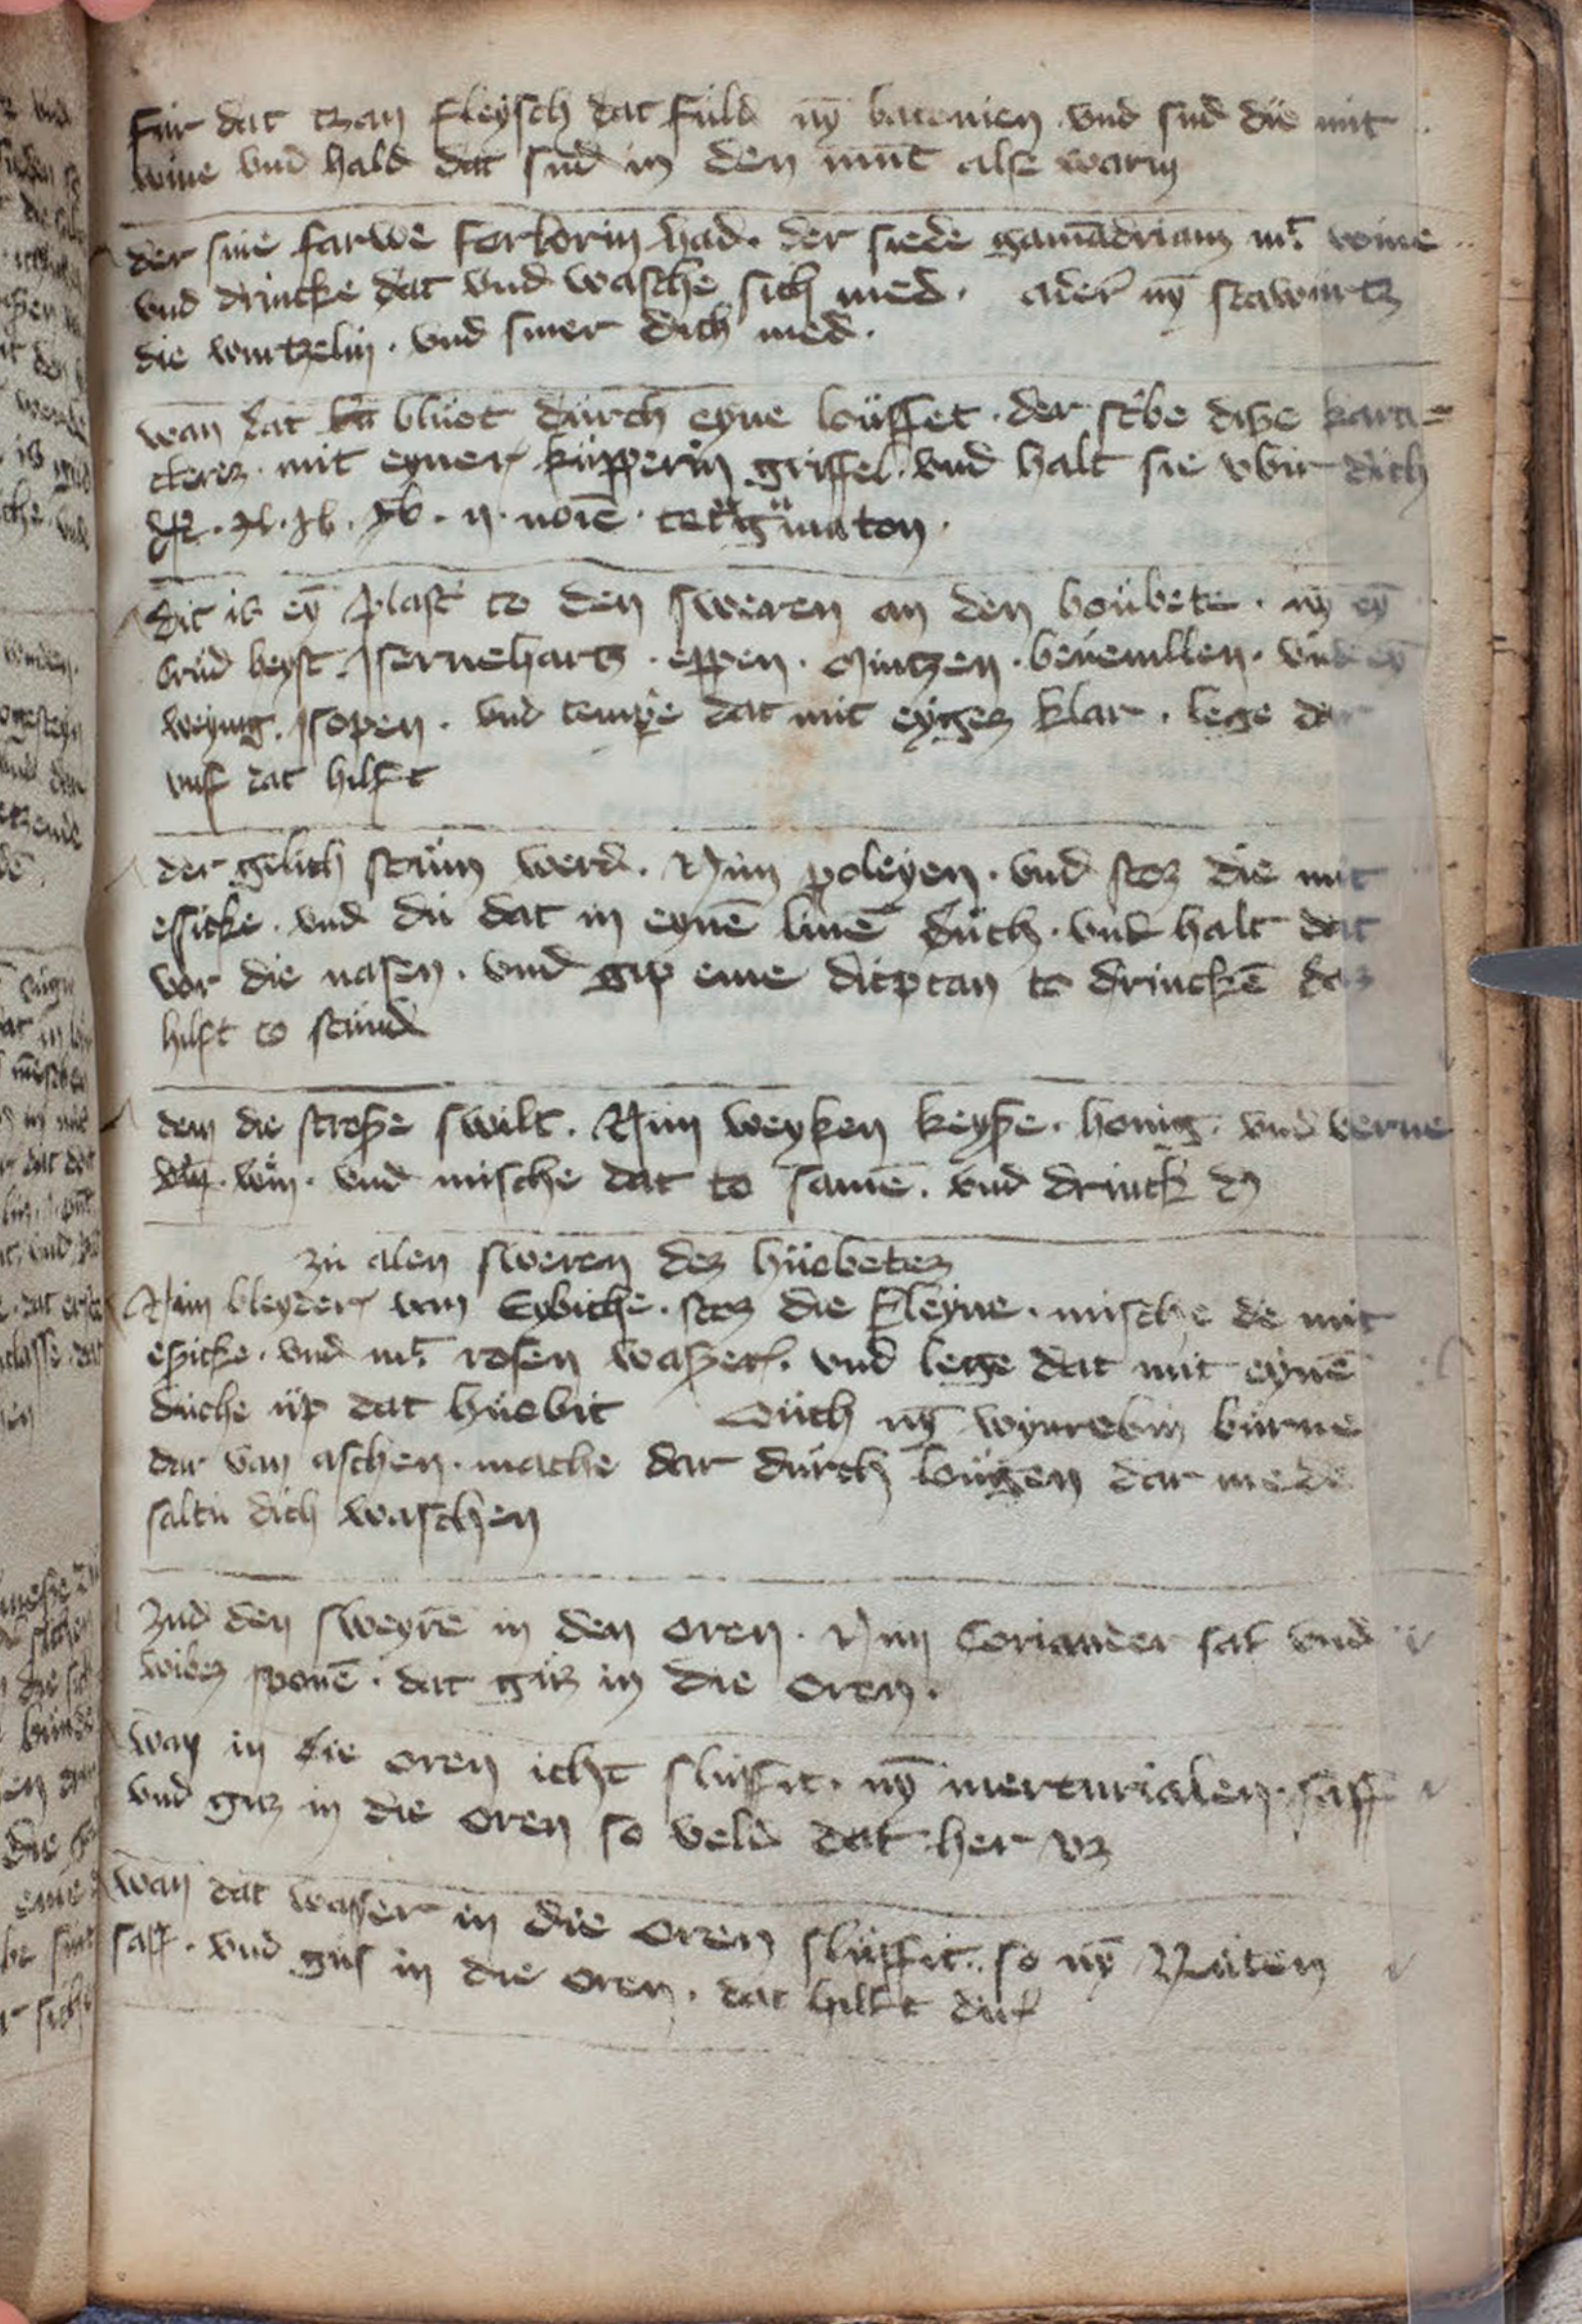 Fur dat tzan fleysch dat fuld nÿ batonien vnd sud die mit
wine vnd hald dat sud in den munt alse warm
der sine farwe forlorin had. der siede gamādriam mt wine
vnd drincke dat vnd wasche sich med. ader nȳ stawurtz
die wurtzelin. vnd smer dich med.
wan dat bluot durch eyne louffet. der scbe disze kara=
cterez. mit eyner kupperin griffel. vnd halt sie vbir dich
noīe
dit is eȳ plast to den sweren an den houbete. nȳ eȳ
krud heyst Jserneharts. eppen. Mintzen. beuenllen. vnd eȳ
weynig. Jsopen. vnd tempe dat mit eyger klar. lege dar
vuf dat hilft
der gelich stum werd. Nim poleyen. vnd stoz die mit
essicke. vnd du dat in eynē linē duch. vnd halt dat
vor die nasen. vnd gip eme diptan to drinckē daz
hilft to stund
dem die strosze swilt. Nim weyken keysze. honig. vnd verne
win. vnd mische dat to samē. vnd drinck
zu alen sweren dez huobetez
Nim bleyder vom Eybiche. stoz die kleyne. mische de mit
eszicke. vnd mt rosen waszer. vnd lege dat mit eynē
duche up dat huobit Ouch nȳ wynrebin burne
dar van aschen. mache dar durch lougen dar mede
saltu dich waschen
Zud den sweyrē in den oren. Nim Coriander saf vnd
wibez sponē. dat guz in die oren.
wan in die oren icht sluffit. nȳ mercurialen. saff
vnd guz in die oren so veld dat her vz
wan dat wasser in die oren sluffit. so nȳ Ruten
saff. vnd gus in die oren. dat hilft